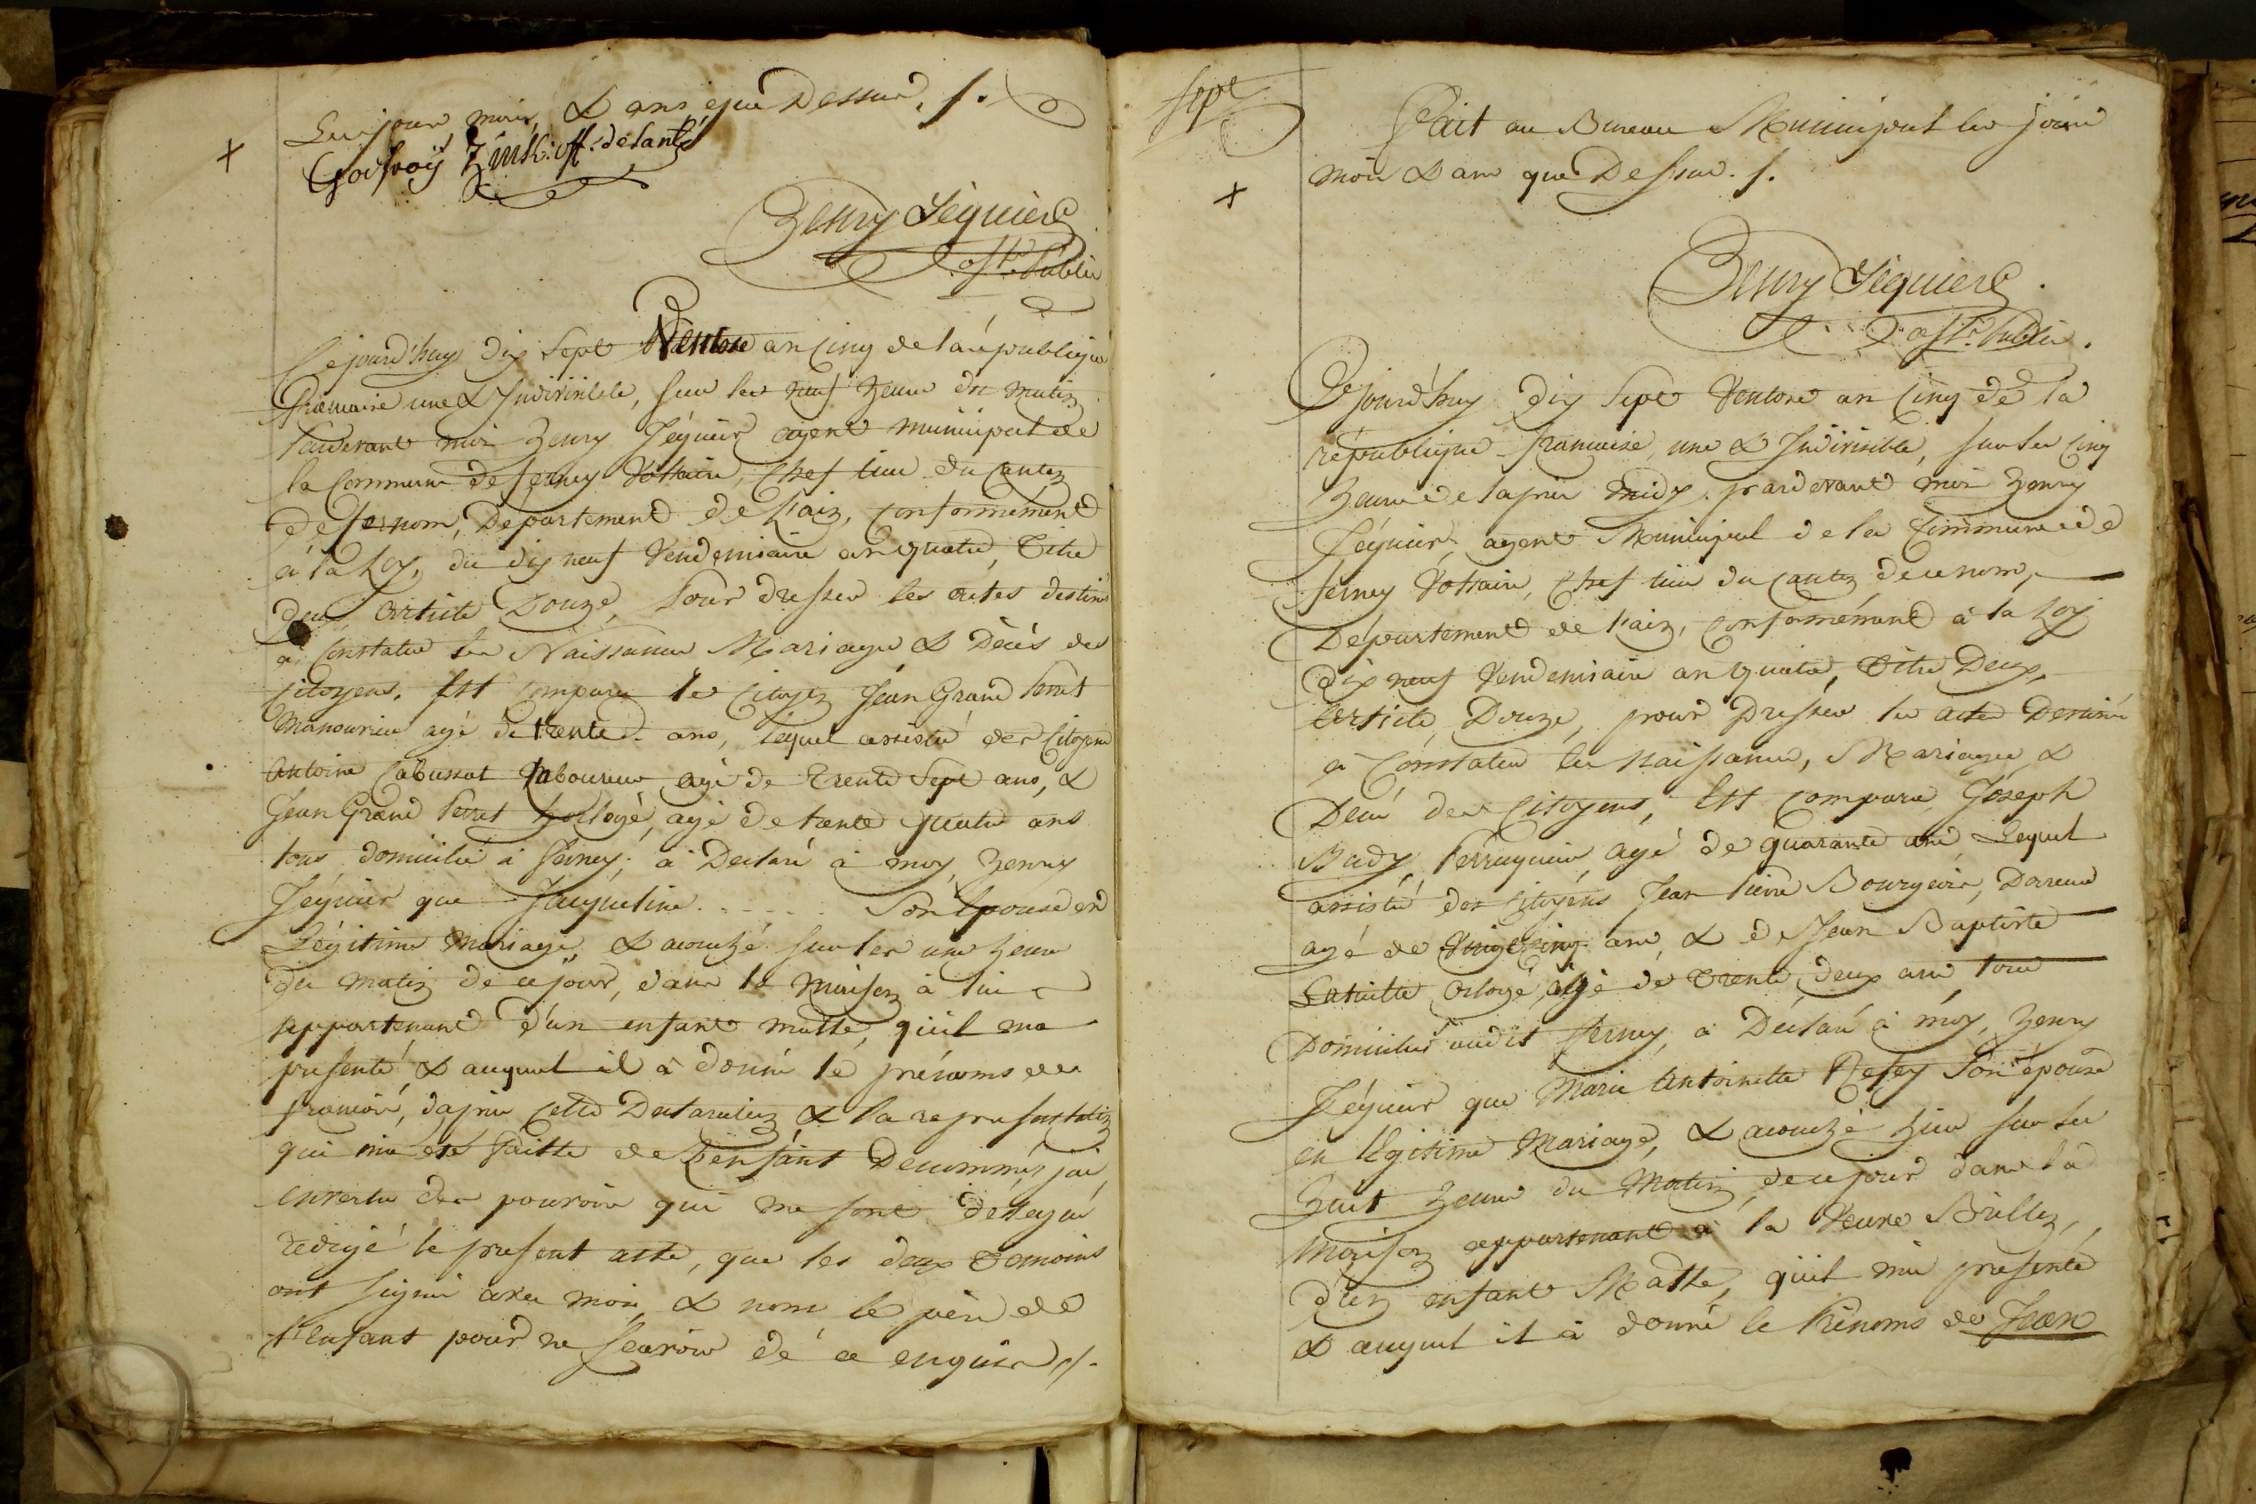 Les jour, mois, & ans que Dessus. /.
Godfroÿ Zink: off: de santé
Henry Séguier
off. Public
Cejourd'huy dix sept Ventose an Cinq de la république
francaise une & Indivisible, sur les neuf heure du matin
Pardevant moi henry Séguier agent municipal de
la Commune de ferney Voltaire, Chef lieu du Canton
de ce nom, Département de L'ain, Conformément
à la Loy, du dix neuf Vendemiaire an quatre, Titre
deux Article Douze, Pour dresser les actes destinés
à Constater les Naissance Mariage & Décès des
Citoyens. Est comparu le Citoyen Jean Grand Perret
Manouvrier agé de trente ans, lequel assisté des Citoyens
Antoine Cabussat laboureur agé de Trente Sept ans, &
Jean Grand Perret horlogé, agé de trente quatre ans
tous domicilié à ferney; à Declaré à moy, henry
Séguier que Jacqueline . . . . . Son épouse en
Légitime Mariage, & acouché sur les une heure
du matin de ce jour, dans la Maison à lui
appartenant d'un enfant malle, qu'il ma
presenté & auquel il à donné le prénoms de
françois, dapres cette Declaration & la representation
qui ma été faitte de l'enfant Denommés jai
envertu des pouvoirs qui me sont delegué
redigé le present acte, que les deux temoins
ont signé avec moi, & nom le père de
l'Enfant pour ne Scavoir de ce enquis /.
Sept
Fait au Bureau Municipal les jour
mois & ans que Dessus. /.
Henry Séguier
off. Public.
Cejourd'huy dix Sept Ventose an Cinq de la
république francaise, une & Indivisible, sur les Cinq
heure de lapres midy. pardevant moi henry
Séguier, agent Municipal de la Commune de
ferney Voltaire, Chef lieu du Canton de ce nom,
Département de l'ain, Conformément à la Loy
dix neuf Vendemiaire an quatre, Titre Deux,
Article, Douze, pour Dresser les actes Destiné
à Constater les naissance, Mariage &
Decés des Citoyens, Est comparu Joseph
Budy, Perruquier, agé de quarante ans, Lequel
assisté des Citoyens Jean Pierre Bourgeois, Doreur
agé de Vingt Cinq ans, & de Jean Baptiste
Orlogé, agé de Trente deux ans, tous
Domicilies audit ferney, à Declaré à moy, henry
Séguier que Marie Antoinette Son épouse
en légitime Mariage, & acouché hier sur les
huit heure du Matin, de ce jour dans la
Maison appartenant à la Veuve Brillon,
d'un enfant Malle, qu'il ma presenté
& auquel il à donné le Prénoms de Jean